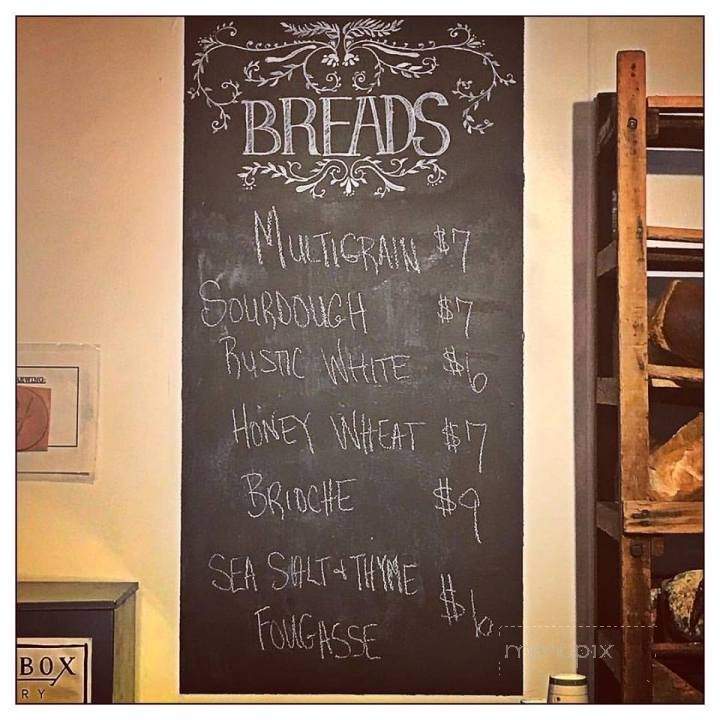 BREADS
MULTIGRAIN $7
SOURDOUGH $7
RUSTIC WHITE $6
HONEY WHEAT $7
BRIOCHE $9
SEA SALT & THYME
FOUGASSE $6
BOX
RY